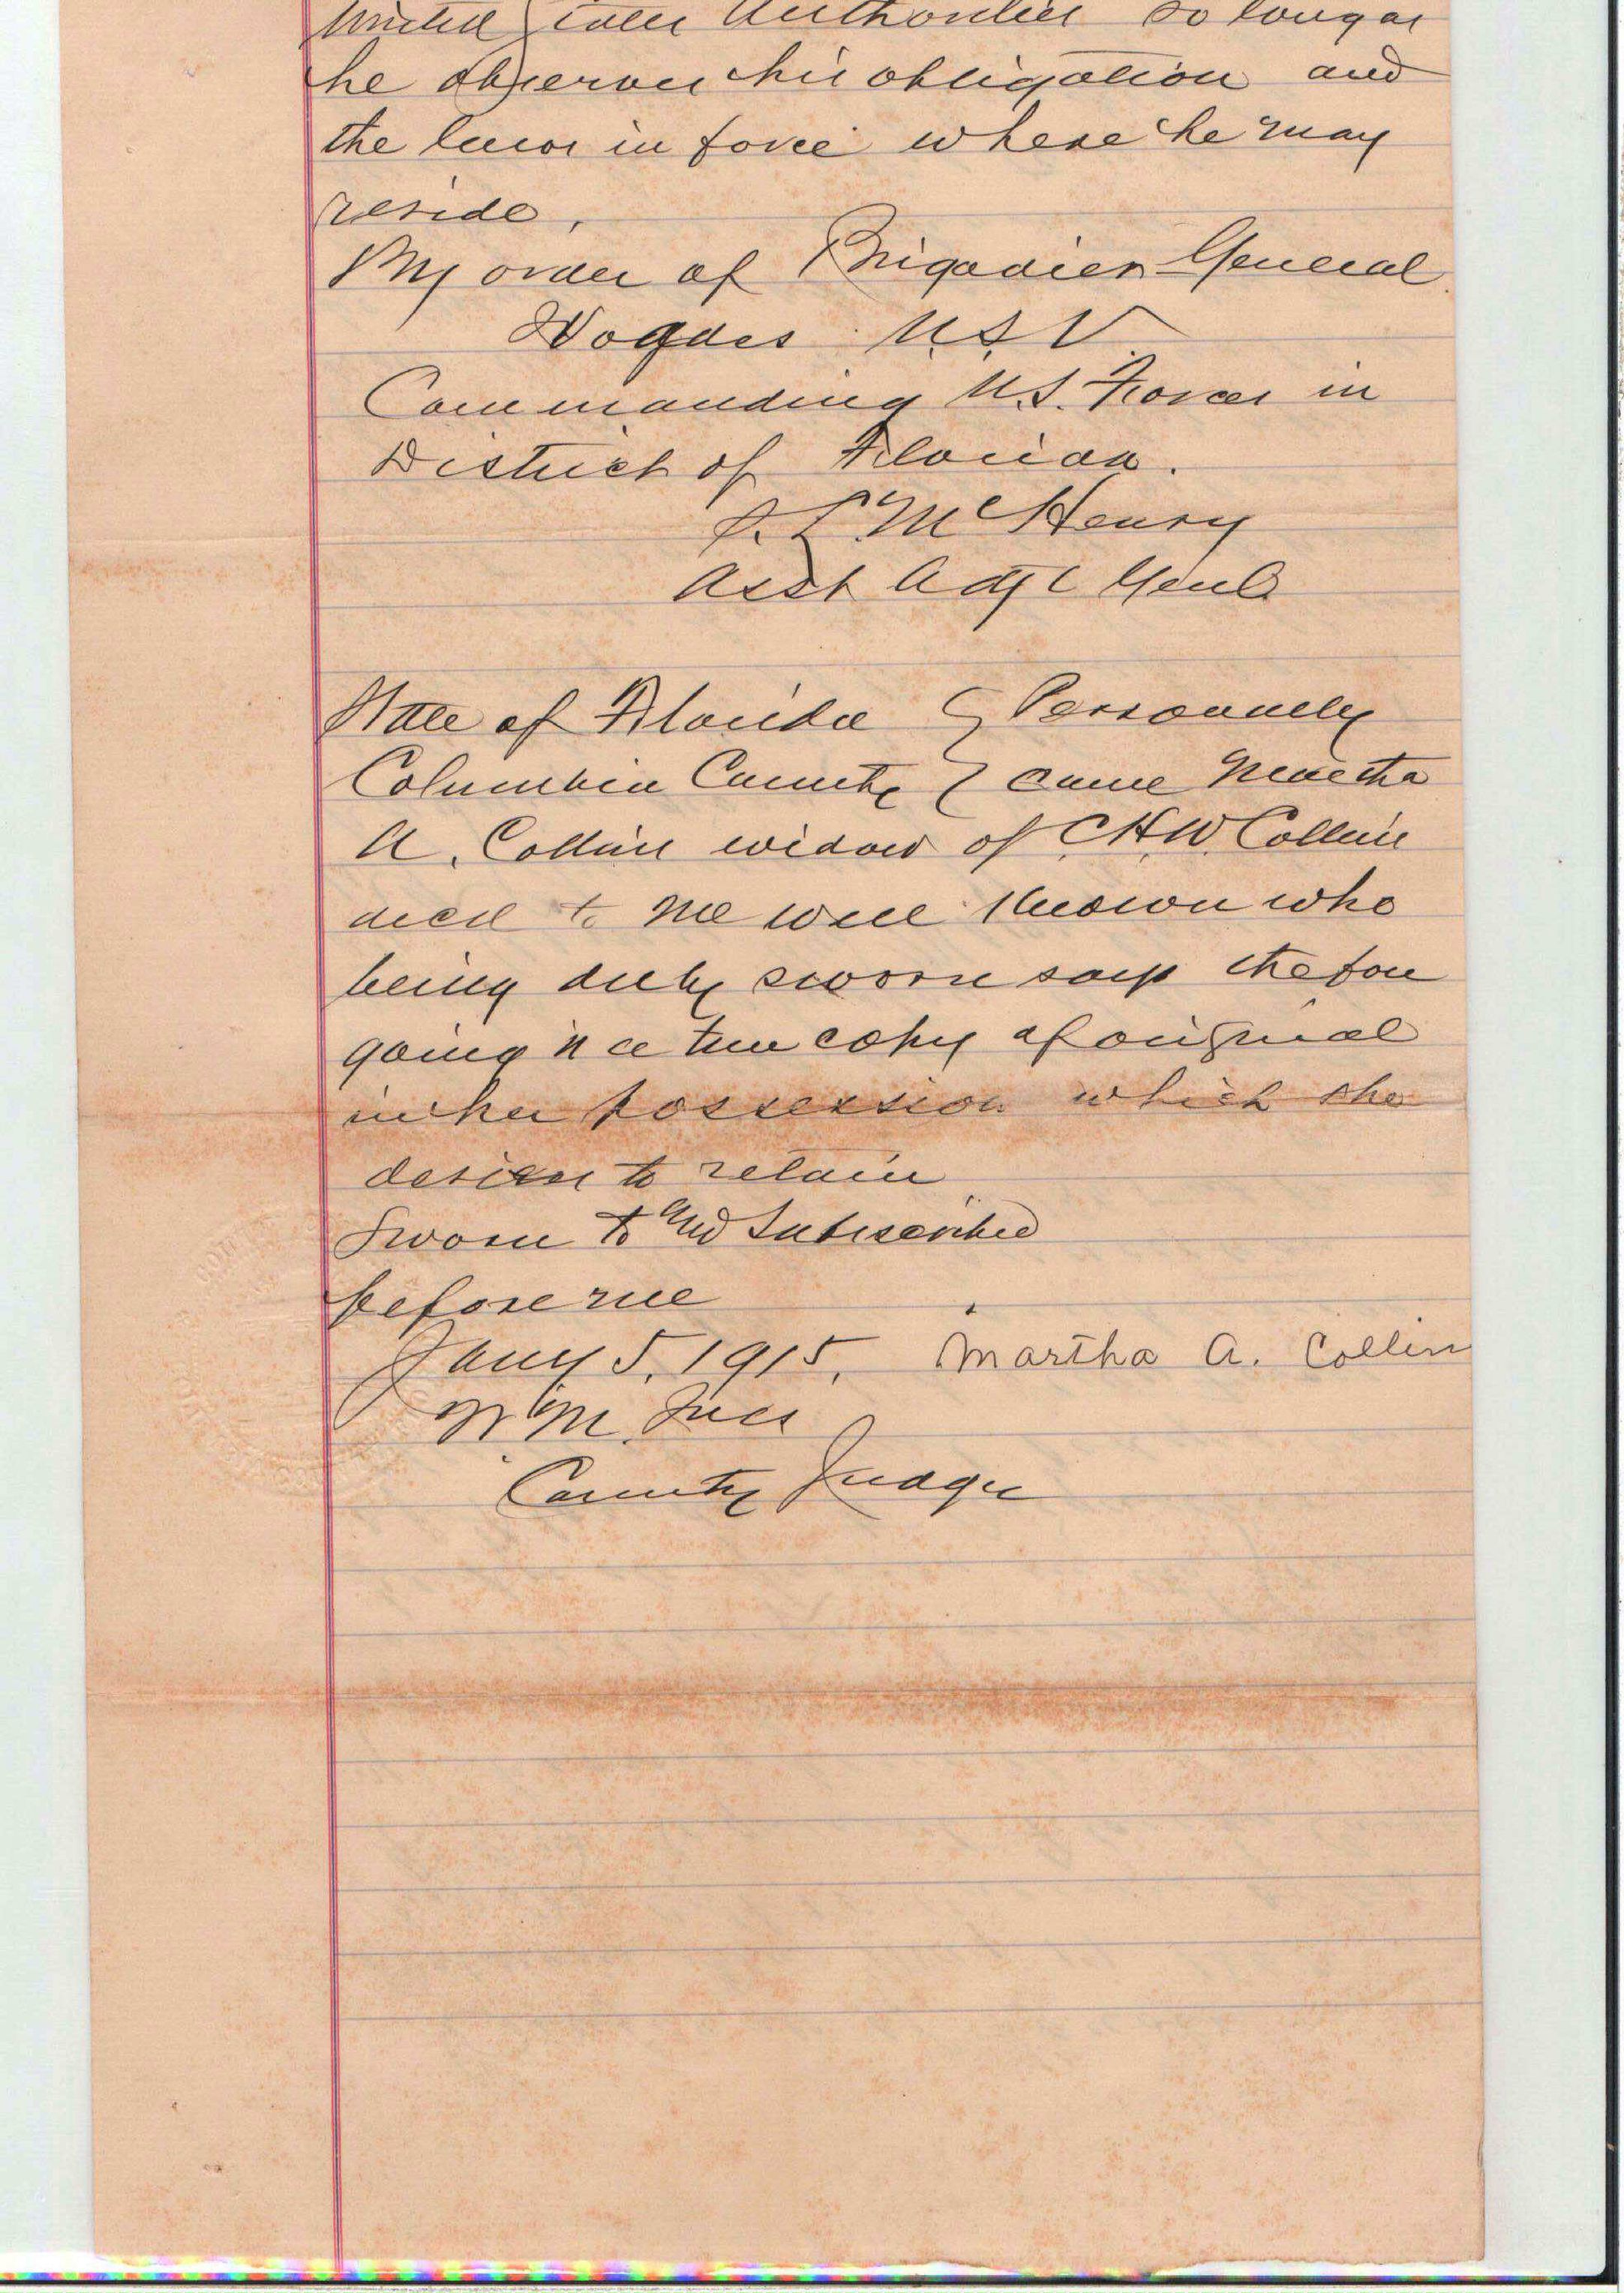 United States Authorities so long as
he observes his obligation and
the laws in force where he may
reside,
By order of Brigadier General
Vogdes U.S.V.
Commanding U.S. Forces in
District of Florida.
McHenry
Asst Adjt Genl
State of Florida } Personally
Columbia County } came Martha
A. Collins widow of C.H.W. Collins
decd to me well known who
being duly sworn says the fore
going is a true copy of original
in her possession which she
desires to retain
Sworn to and Subscribed
before me
Jany 5, 1915, Martha A. Collins
W.M. Ives
County Judge